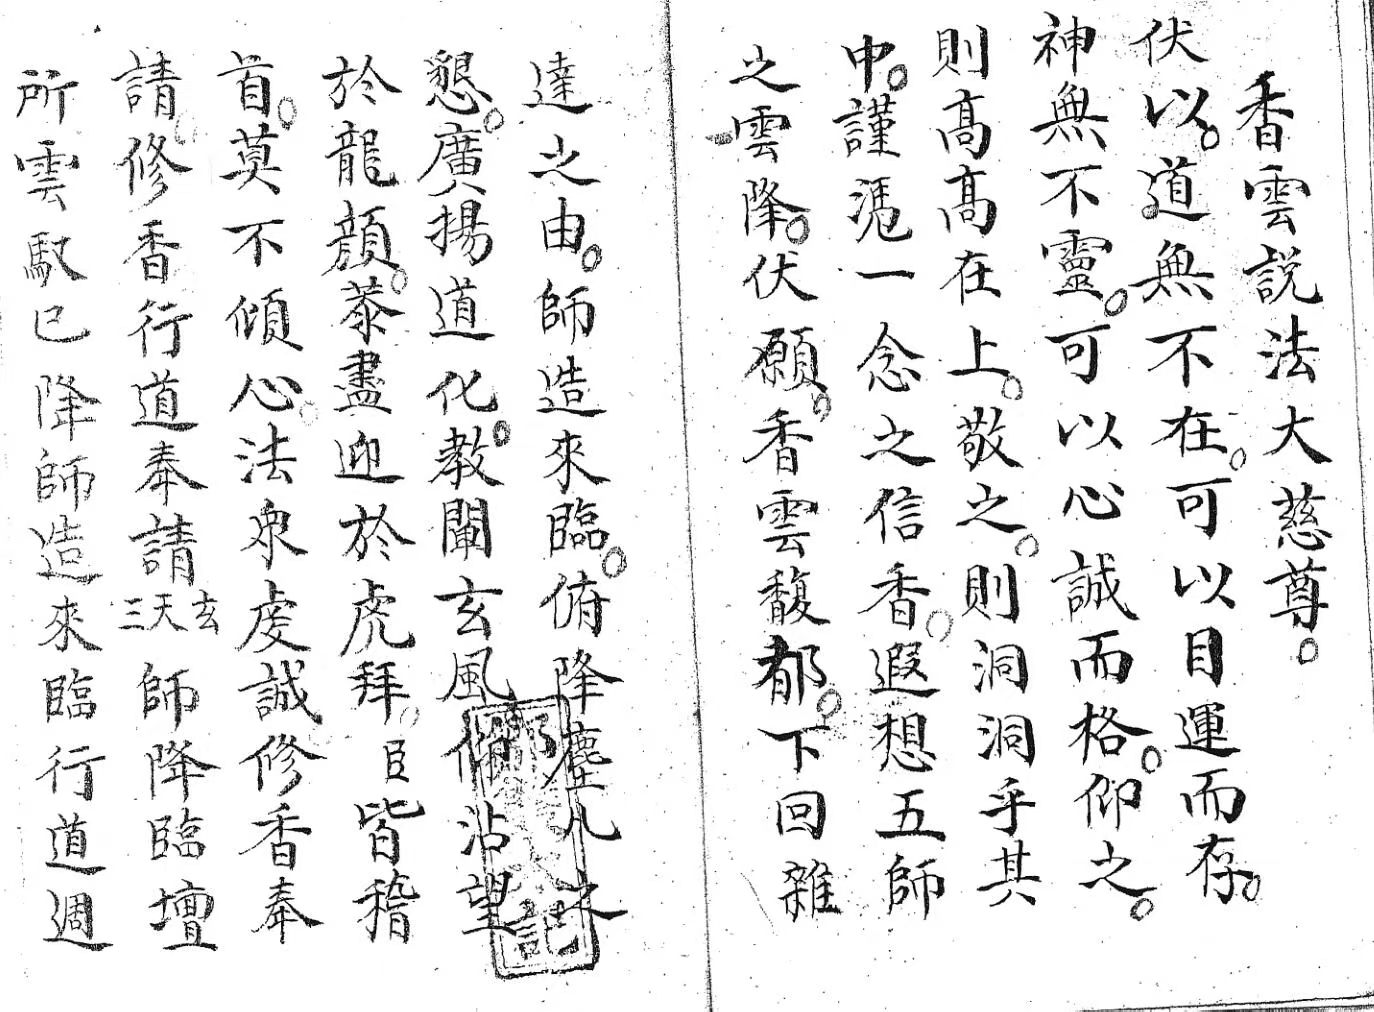 香雲説法大慈尊。
伏以。道無不在。可以目運而存。
神無不靈。可以心誠而格。仰之。
則高高在上。敬之。則洞洞乎其
中。謹馮一念之信香。遐想五師
之雲降。伏願。香雲馥郁。下回雜
達之由。師造來臨。俯降塵凡之
懇。廣揚道化。教闡玄風。俯沾望
於龍顔。忝盡迎於虎拜。臣皆稽
首。莫不傾心。法衆虔誠修香奉
請。修香行道奉請玄天三師降臨壇
所雲馭已降師造來臨行道週